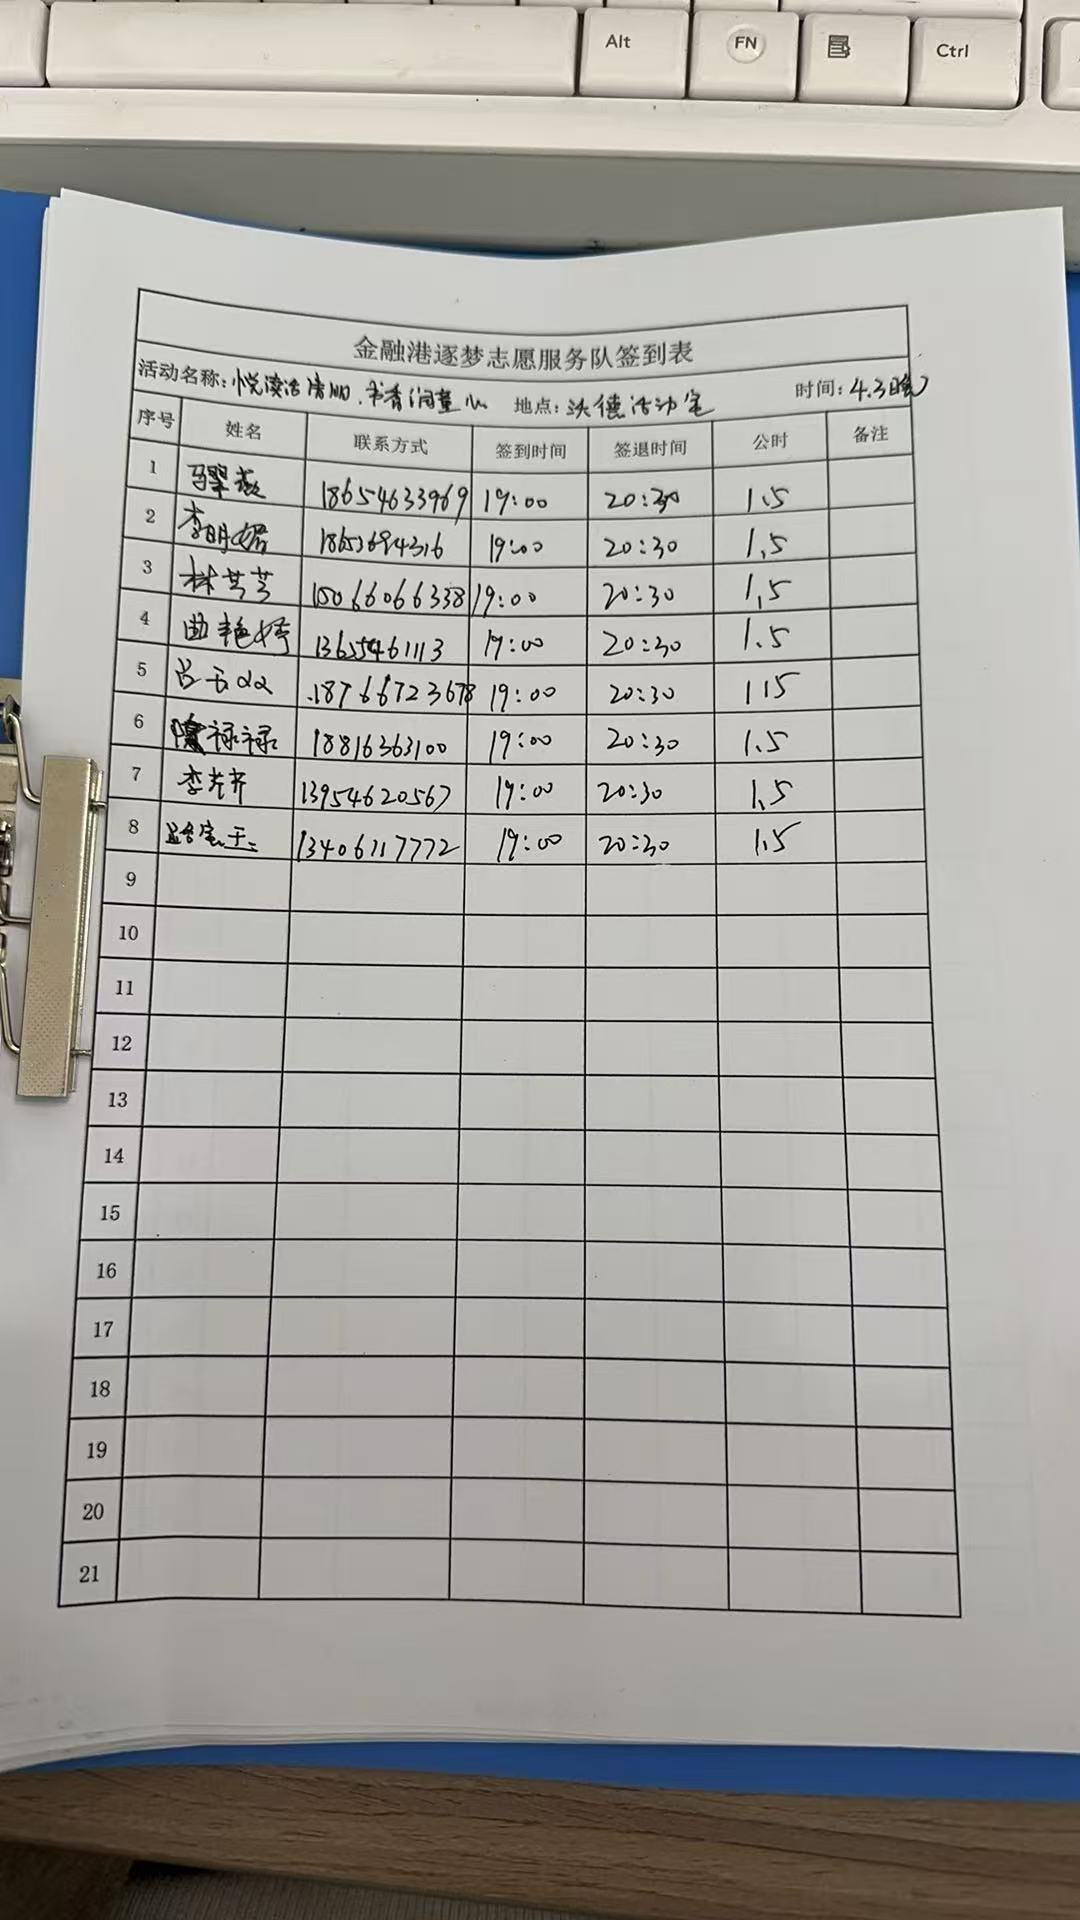 Alt FN Ctrl
金融港逐梦志愿服务队签到表
活动名称:悦读洁清明.书香润童心 地点:沃德活动室 时间:4.3日晚
序号 姓名 联系方式 签到时间 签退时间 公时 备注
1 马翠燕 18654633969 19:00 20:30 1.5
2 李明媚 19:00 20:30 1.5
3 林芸芸 15066066338 19:00 20:30 1.5
4 曲艳婷 13655461113 19:00 20:30 1.5
5 18766723678 19:00 20:30 115
6 禄禄 18816363100 19:00 20:30 1.5
7 李芹芹 13954620567 19:00 20:30 1.5
8 13406117772 19:00 20:30 1.5
9
10
11
12
13
14
15
16
17
18
19
20
21